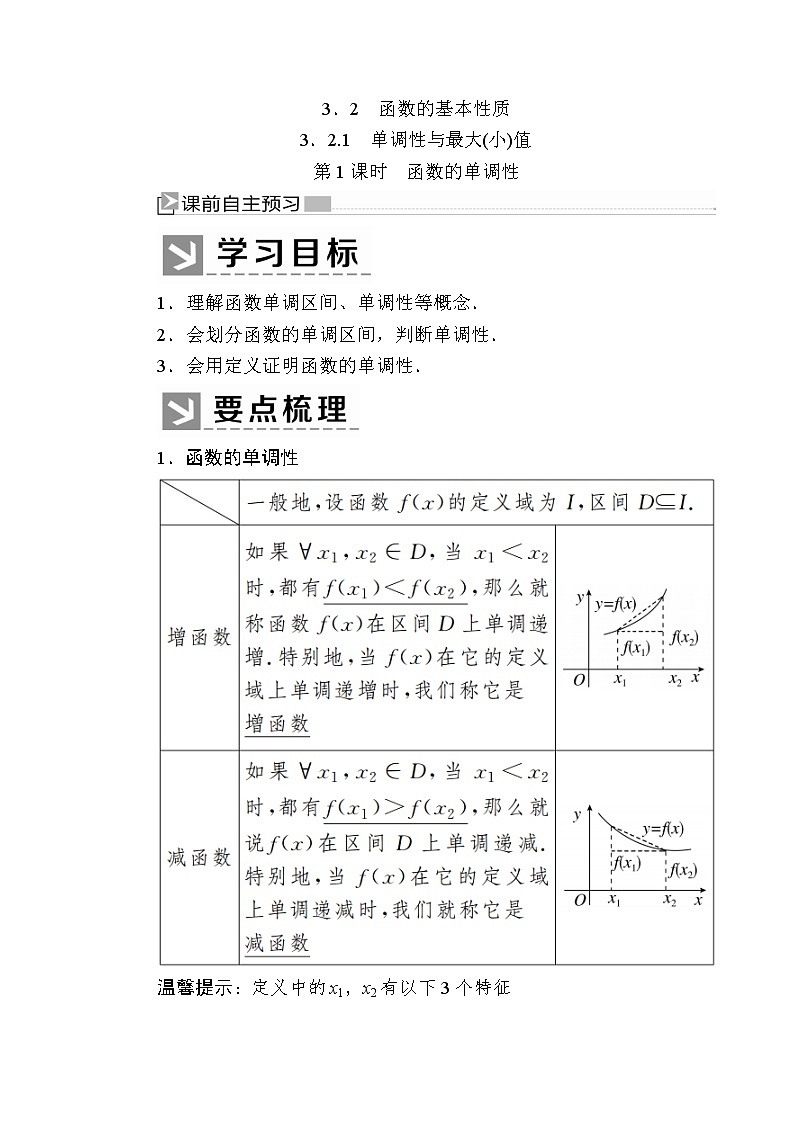 3．2　函数的基本性质
3．2.1　单调性与最大(小)值
第1课时　函数的单调性
课前自主预习
学习目标
1．理解函数单调区间、单调性等概念．
2．会划分函数的单调区间，判断单调性．
3．会用定义证明函数的单调性．
要点梳理
1．函数的单调性
一般地,设函数 f(x)的定义域为 I,区间 D⊆I.
增函数
如果 ∀x₁,x₂∈D,当 x₁<x₂
时,都有f(x₁)<f(x₂),那么就
称函数 f(x)在区间 D 上单调递
增.特别地,当 f(x)在它的定义
域上单调递增时,我们称它是
增函数
y
y=f(x)
f(x₁)
f(x₂)
O x₁ x₂ x
减函数
如果 ∀x₁,x₂∈D,当 x₁<x₂
时,都有f(x₁)>f(x₂),那么就
说f(x)在区间 D 上单调递减.
特别地,当 f(x)在它的定义域
上单调递减时,我们就称它是
减函数
y
y=f(x)
f(x₁)
f(x₂)
O x₁ x₂ x
温馨提示：定义中的x₁，x₂有以下3个特征